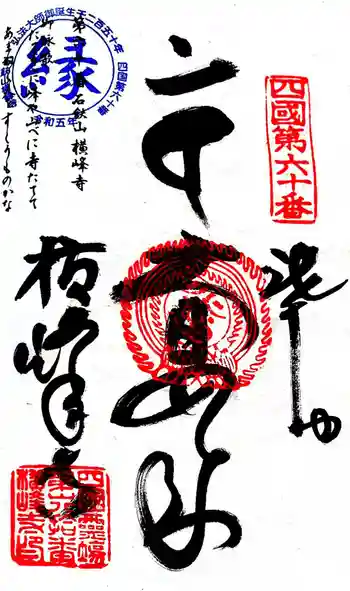 四國第六十番
奉拝
大日如来
横峰寺
弘法大師御誕生千二百五十年 四国第六十番
縁
令和五年
第六十番 石鈇山 横峰寺
御詠歌
たてよこに峰や山べに寺たてて
あまねく人を救ふものかな
四國霊場
第六拾番
横峰寺印